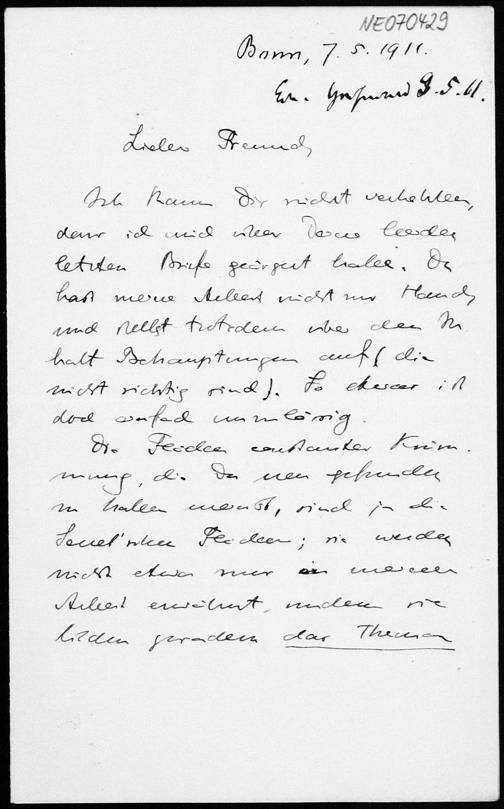 NE070429
Bonn, 7. 5. 1911.
Greifswald 9.5.11.
Lieber Freund,
Ich kann Dir nicht verhehlen,
dass ich mich über Deine beiden
letzten Briefe geärgert habe. Du
hast meine Arbeit nicht zur Hand,
und stellst trotzdem über den In
halt Behauptungen auf (die
nicht richtig sind). So etwas ist
doch einfach unzulässig.
Die Flächen constanter Krüm-
mung, die Du neu gefunden
zu haben meinst, sind ja die
Flächen; sie werden
nicht etwa nur in meiner
Arbeit erwähnt, sondern sie
bilden geradezu das Thema